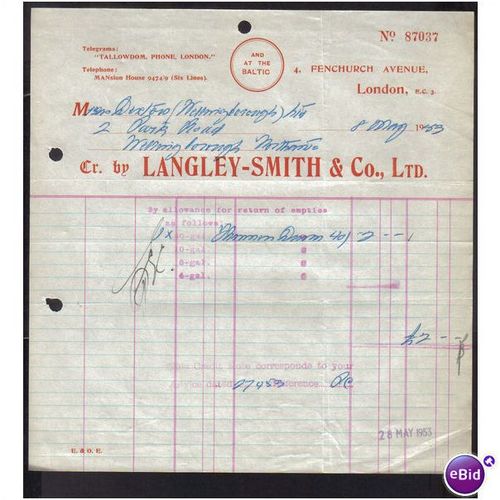 Nº 87037
Telegrams:
"TALLOWDOM, PHONE, LONDON."
Telephone:
MANsion House 9474/9 (Six Lines).
AND
AT THE
BALTIC
4, FENCHURCH AVENUE,
London, E.C. 3.
Wellingborough) Ltd
2 Park Road
8 May 1953
Wellingborough Northants
Cr. by LANGLEY-SMITH & Co., LTD.
By allowance for return of empties
as follows:
1 x 40-gal. Drum 40/- 2 - -
-gal. @
-gal. @
-gal. @
£2 - -
This Credit Note corresponds to your
Advice dated 27453 reference.
28 MAY 1953
E. & O. E.
eBid